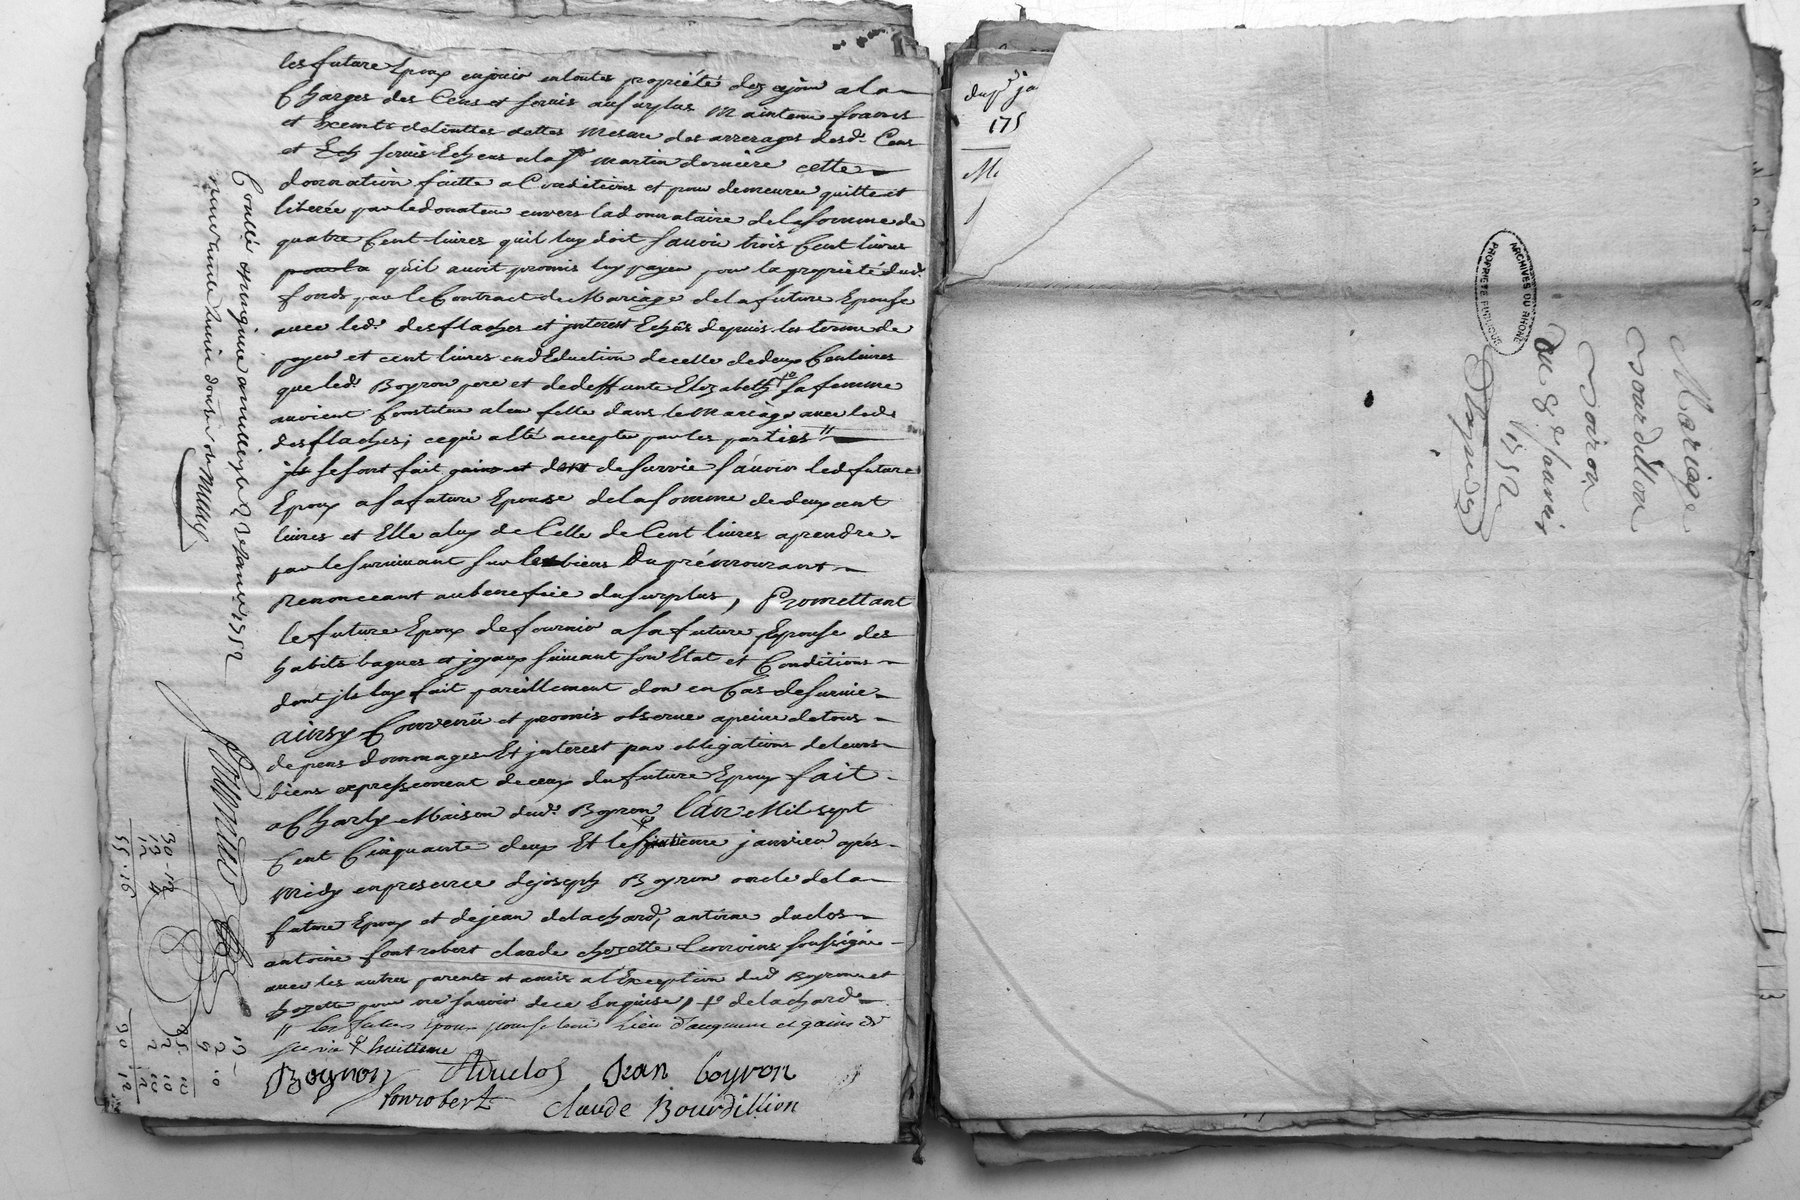 les future Epoux enjouir en toutes propriété des ajour a la
Charges des Cens et servis au surplus Maintenu francs
et Exempts de touttes dettes mesme des arrerages desd. Cens
et servis Echeus a la st martin derniere cette
donnation faitte a Conditions et pour demeurer quitte et
liberée par le donateur envers la donnataire de la somme de
quatre Cent livres quil luy doit sauoir trois Cent livres
pour la quil auoit promis luy payer pour la proprieté dud.
fonds par le Contract de Mariage de la future Epouse
auec led. desflaches et jnterest Echûs depuis les terme de
payer et cent livres en dEduction de celle de deux Cent livres
que led. Boyron pere et de deffunte Elizabeth fo sa femme
avoient Constitue a leur fille dans le Mariage auec led.
desflaches; ce qui a Eté accepté par les parties //
jls se font fait gains et dont de survie sauoir led. future
Epoux a sa future Epouse de la somme de deux cent
livres et Elle a luy de Celle de Cent livres a prendre
par le survivant sur les biens Du prémourant
Renonceant au benefice du surplus, Promettant
le future Epoux de fournir a sa future Epouse des
habits bagues et joyaux suivant son Etat et Conditions
dont jls luy fait pareillement don en Cas de survie
ainsy Convenu et promis observer a peine de tous
depens dommages Et jnterest par obligations de leurs
biens expressement de ceux du future Epoux fait
a Charly Maison dud. Boyron L'an Mil sept
Cent Cinquante deux Et le janvier apres
midy en presence de joseph Boyron oncle de la
future Epoux et de jean delachard, antoine duclos
antoine fontrobert claude chozette temoins soussignés
auec les autres parents et amis a l'Exception dud. Boyron et
chozette pour ne sauoir de ce Enquise, fo delachard
// les futurs Epoux pour se tenir Lieu d'augment et gains de
survie huitieme
Boyron ADuclos Jean boyron
fonrobert Claude Bourdillion
Conllé a janv. 1752
30 12
12 4
12
55 16
12
2 0
6
25 10
2 10
2 12
90 12
du
175
Mariage
Bourdillon
Boiron
du 8e Janvier
1752
ARCHIVES DU RHONE
PROPRIETE PUBLIQUE